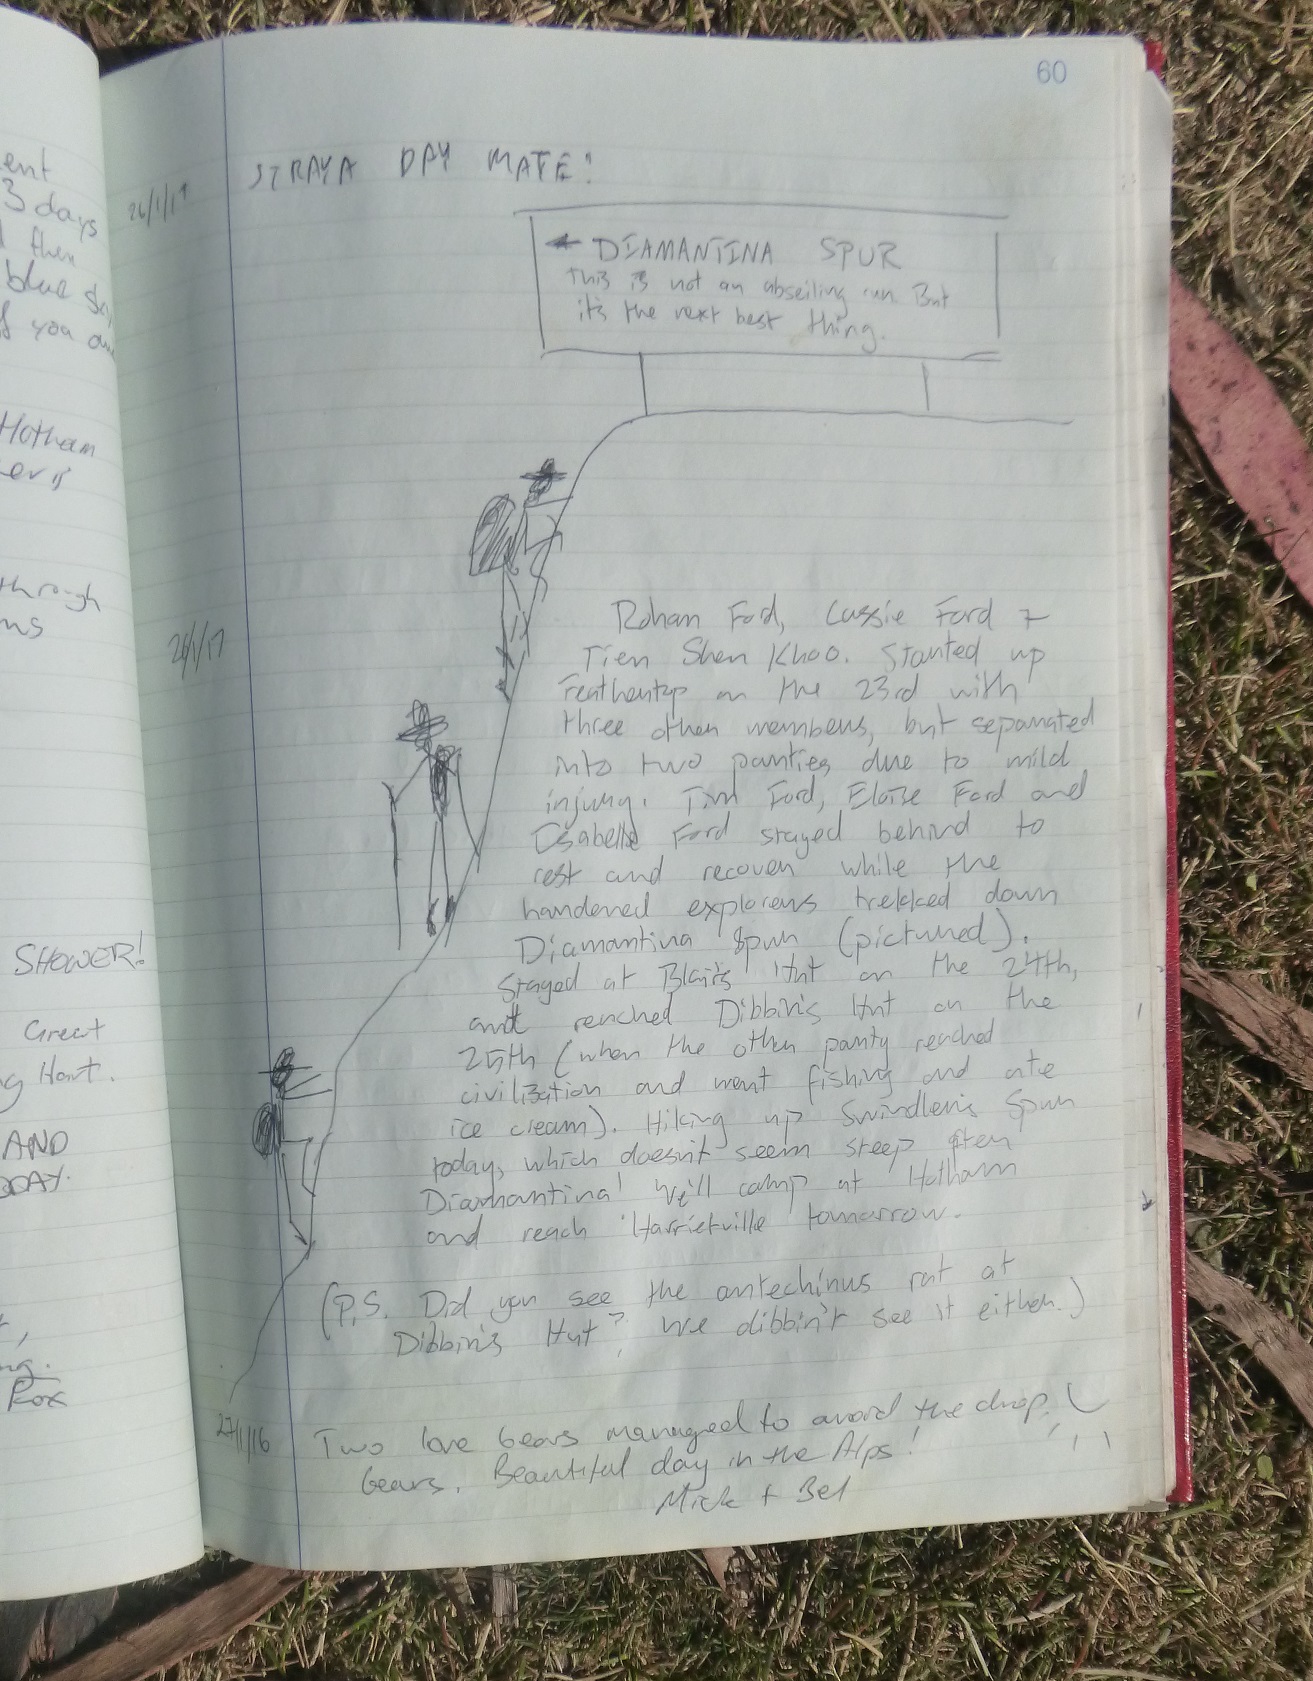 ent
3 days
then
blue
if you
Hotham
through
SHOWER!
Great
Hant.
AND
Rox
60
26/1/17
STRAYA DAY MATE!
← DIAMANTINA SPUR
This is not an abseiling run But
it's the next best thing.
26/1/17
Rohan Ford, Cassie Ford +
Tien Shen Khoo. Started up
Feathertop on the 23rd with
three other members, but separated
into two parties due to mild
injury. Tim Ford, Eloise Ford and
Isabelle Ford stayed behind to
rest and recover while the
hardened explorers trekked down
Diamantina Spur (pictured).
Stayed at Blair's Hut on the 24th,
and reached Dibbin's Hut on the
25th (when the other party reached
civilization and went fishing and ate
ice cream). Hiking up Swindler's Spur
today, which doesn't seem steep after
Diamantina! We'll camp at Hotham
and reach Harrietville tomorrow.
(P.S. Did you see the antechinus rat at
Dibbin's Hut? We dibbin't see it either.)
27/1/16
Two love bears managed to avoid the drop
bears. Beautiful day in the Alps!
Mick + Bel